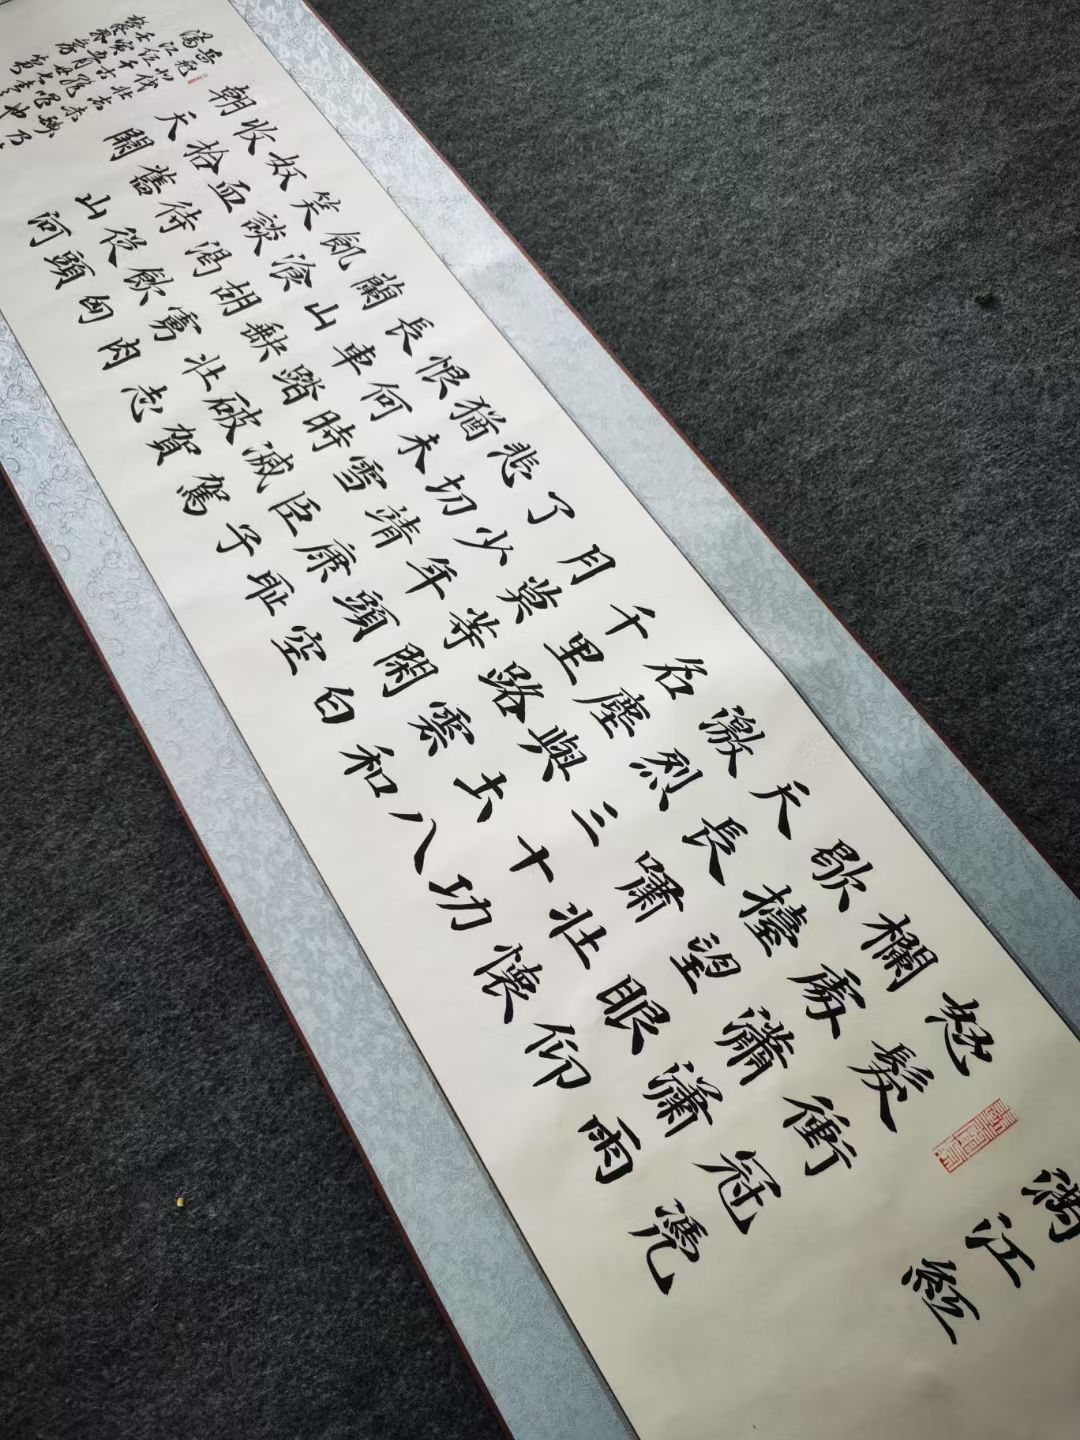 滿江紅
怒髮衝冠凴
欄處瀟瀟雨
歇擡望眼仰
天長嘯壯懷
激烈三十功
名塵與土八
千里路雲和
月莫等閑白
了少年頭空
悲切靖康耻
猶未雪臣子
恨何時滅駕
長車踏破賀
蘭山缺壯志
飢飡胡虜肉
笑談渴飲匈
奴血待從頭
收拾舊山河
朝天闕